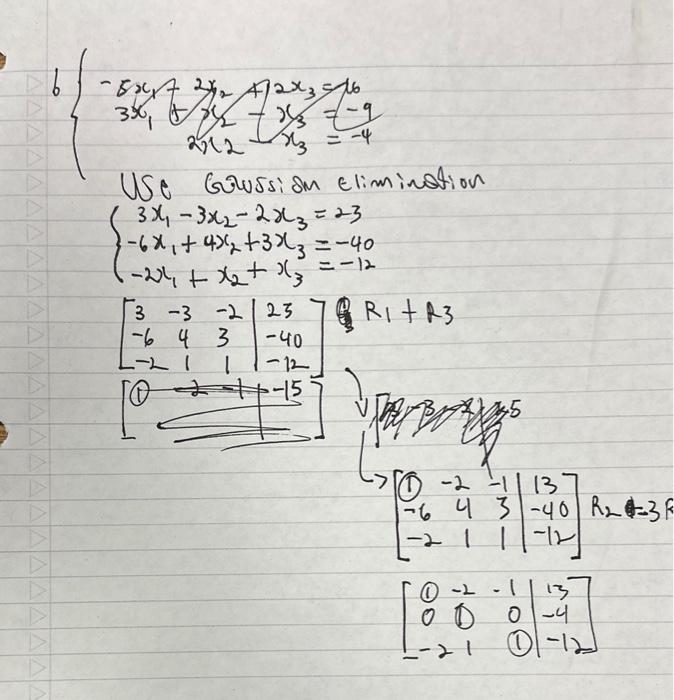 b { -5x₁ + 2x₂ + 2x₃ = 16
3x₁ + x₂ - x₃ = -9
2x2 - x₃ = -4
Use Gaussian Elimination
{ 3x₁ - 3x₂ - 2x₃ = 23
-6x₁ + 4x₂ + 3x₃ = -40
-2x₁ + x₂ + x₃ = -12
[ 3 -3 -2 | 23 ] R1 + R3
-6 4 3 | -40
-2 1 1 | -12
[ 1 -2 -1 | -15 ]
[ 1 -2 -1 | 13 ]
-6 4 3 | -40 R2 -3R
-2 1 1 | -12
[ 1 -2 -1 | 13 ]
0 1 0 | -4
-2 1 1 | -12